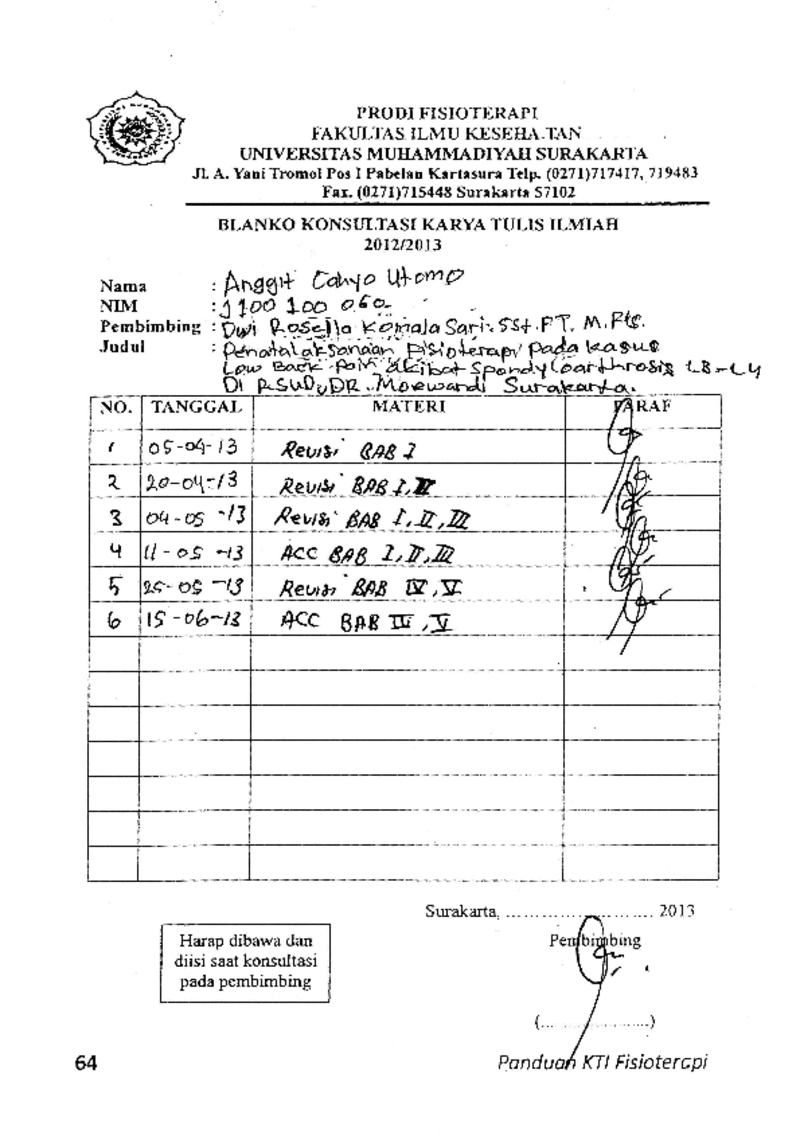 PRODI FISIOTERAPI
FAKULTAS ILMU KESEHATAN
UNIVERSITAS MUHAMMADIYAH SURAKARTA
Jl. A. Yani Tromol Pos I Pabelan Kartasura Telp. (0271)717417, 719483
Fax. (0271)715448 Surakarta 57102
BLANKO KONSULTASI KARYA TULIS ILMIAH
2012/2013
Nama : Anggit Cahyo Utomo
NIM : J 100 100 060
Pembimbing : Dwi Rosella Komala Sari. SSt.FT, M.Fis.
Judul : Penatalaksanaan Fisioterapi pada kasus
Low Back Pain Akibat Spondyloarthrosis L3-L4
DI RSUD DR. Moewardi Surakarta.
NO. TANGGAL MATERI PARAF
1 05-04-13 Revisi BAB I
2 20-04-13 Revisi BAB I, II
3 04-05-13 Revisi BAB I, II, III
4 11-05-13 ACC BAB I, II, III
5 25-05-13 Revisi BAB IV, V
6 15-06-13 ACC BAB III, V
Surakarta, .......................... 2013
Harap dibawa dan
diisi saat konsultasi
pada pembimbing
Pembimbing
(......................)
64 Panduan KTI Fisioterapi